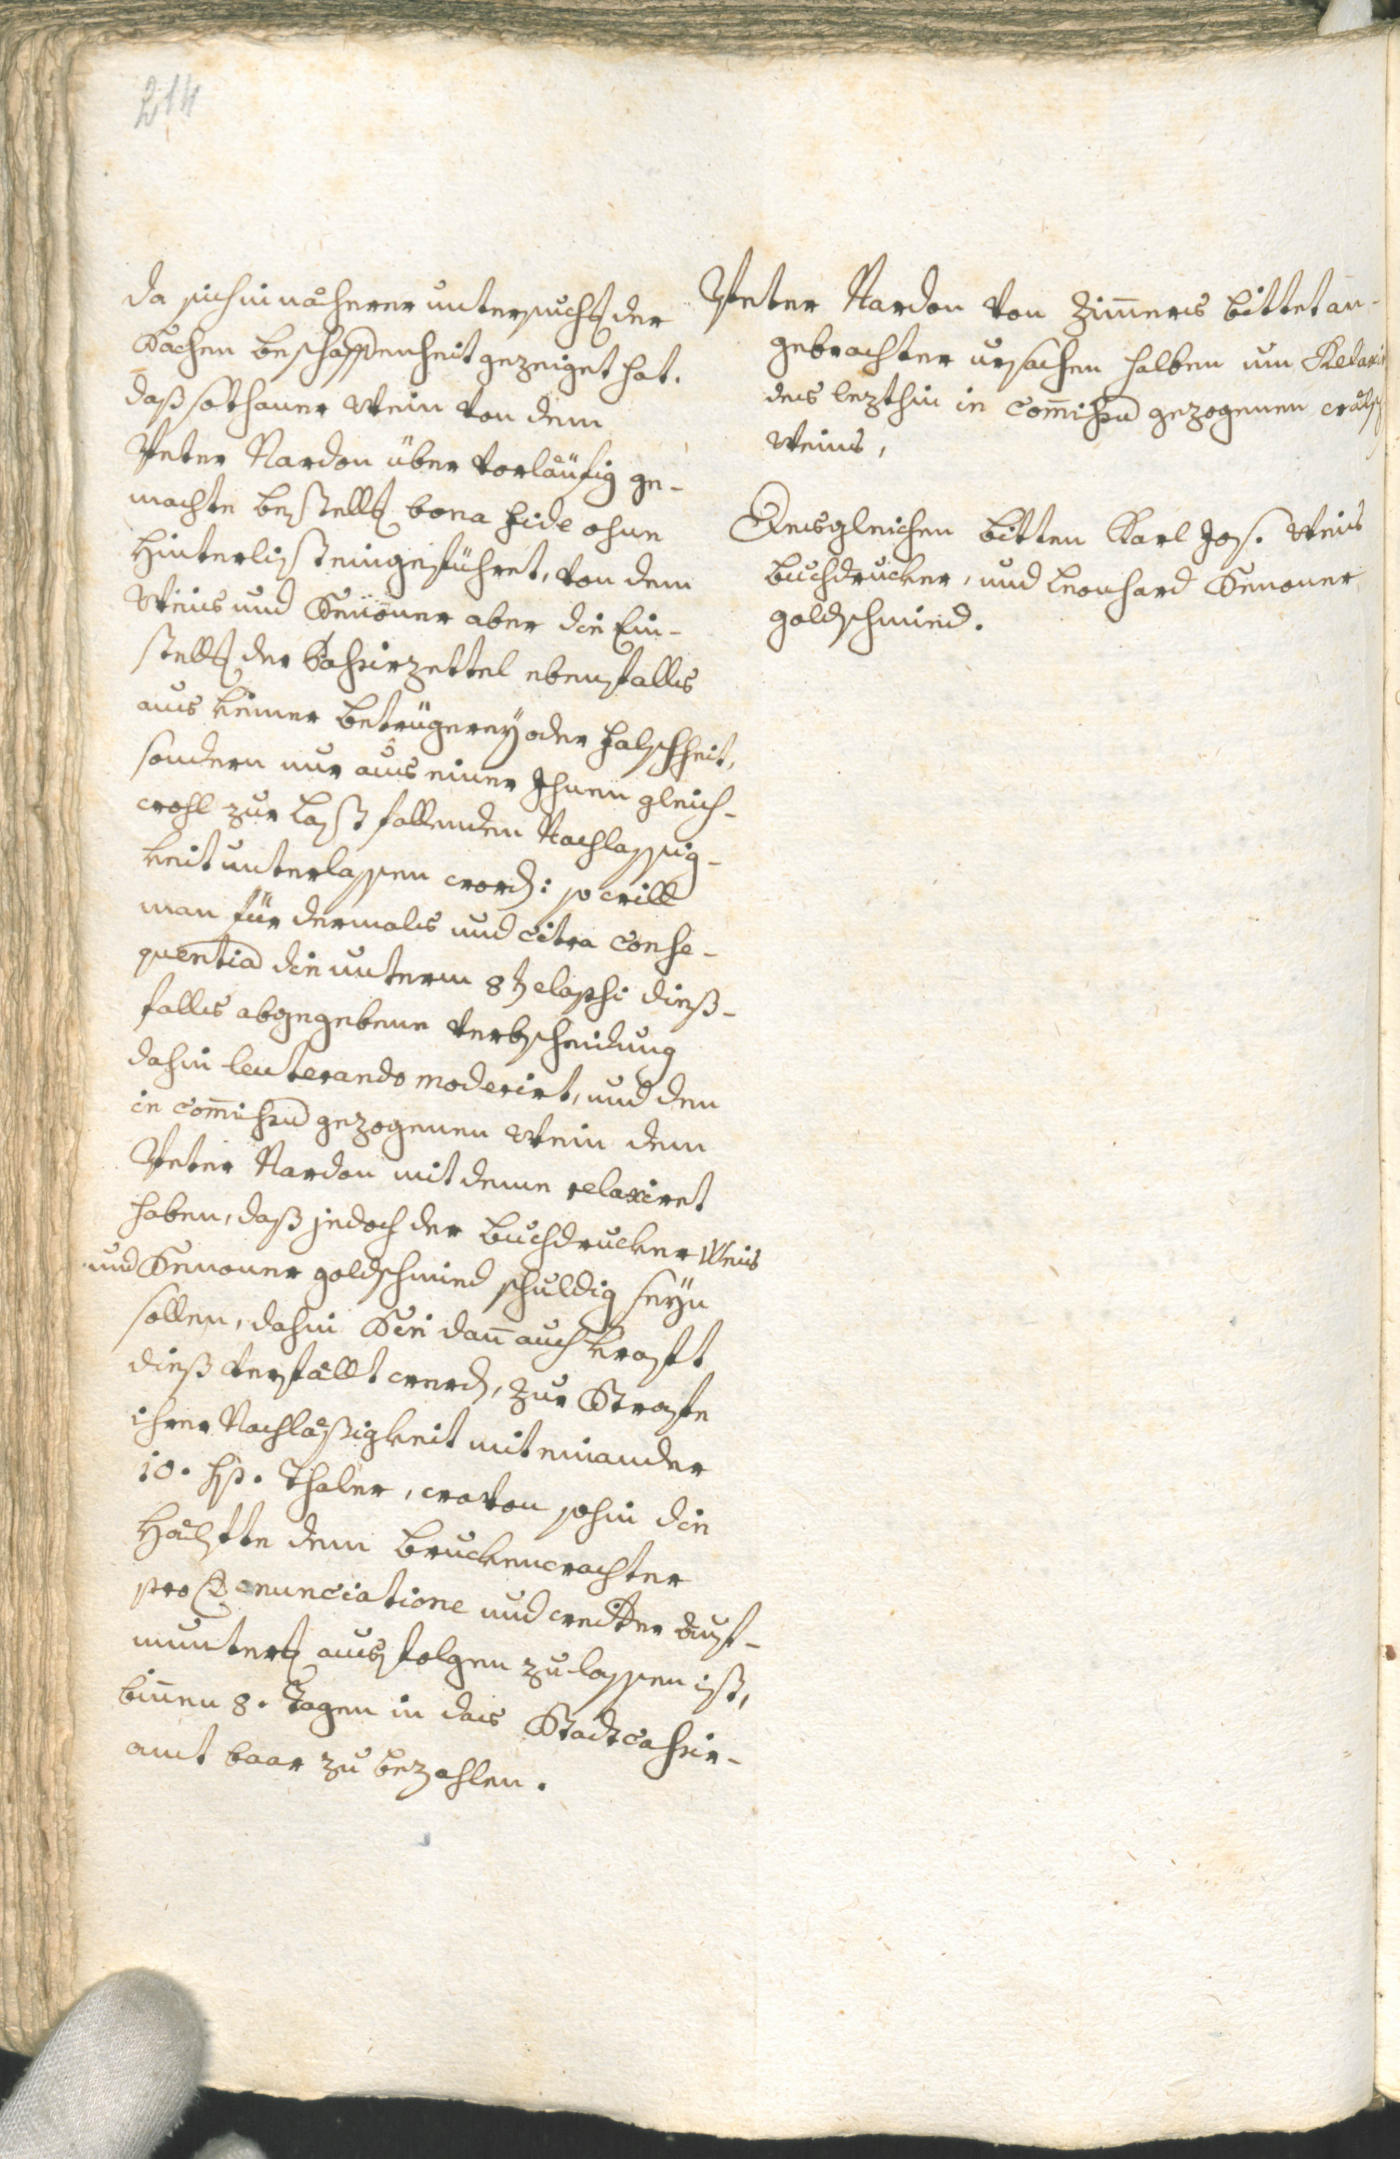 214
da sich in näherer untersuchg der
Sachen beschaffenheit gezeiget hat.
daß sothaner Wein von dem
Peter Nardon über vorläufig ge-
machte bestellg bona fide ohne
Hinterlist eingeführet, von dem
Weis und Senoner aber die Ein-
stellg der Passierzettel ebenfalls
aus keiner betrügerey oder falschheit,
sondern nur aus einer Ihnen gleich-
wohl zur Last fallenden Nachlassig-
keit unterlassen word: so will
man für dermals und citra conse-
quentia die unterm 8t elapsi dieß-
falls abgegebene Verbscheidung
dahin leuterando moderirt, und den
in Commissu gezogenen Wein dem
Peter Nardon mit deme relaxiret
haben, daß jedoch der Buchdrucker Weis
und Senoner goldschmied schuldig seyn
sollen, dahin Sie dan auch kraft
dieß verfällt werd, zur Strafe
ihrer Nachläßigkeit miteinander
10. sp. Thaler, wovon sohin die
Hälfte dem Bruckenwachter
pro Denunciatione und weitter Auf-
munterg ausfolgen zu lassen ist,
binen 8. Tagen in das Stadtcassir-
amt baar zu bezahlen.
Peter Nardon von Zimers bittet an-
gebrachter ursachen halben um
des lezthin in Commissu gezogenen wälsch
Weins,
Desgleichen bitten Karl Jos. Weis
buchdrucker, und Leonhard Senoner
goldschmied.